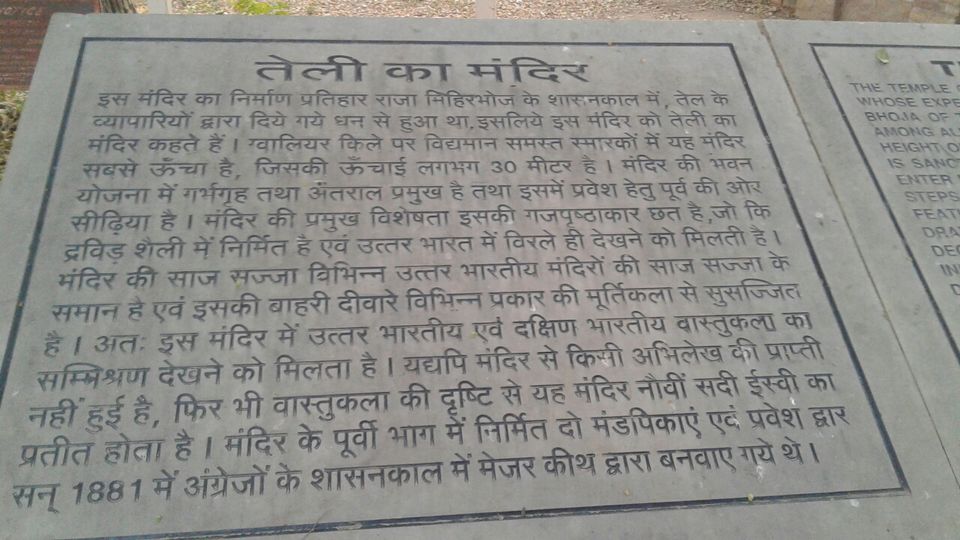 तेली का मंदिर
इस मंदिर का निर्माण प्रतिहार राजा मिहिरभोज के शासनकाल में, तेल के
व्यापारियों द्वारा दिये गये धन से हुआ था, इसलिये इस मंदिर को तेली का
मंदिर कहते हैं । ग्वालियर किले पर विद्यमान समस्त स्मारकों में यह मंदिर
सबसे ऊँचा है, जिसकी ऊँचाई लगभग 30 मीटर है । मंदिर की भवन
योजना में गर्भगृह तथा अंतराल प्रमुख है तथा इसमें प्रवेश हेतु पूर्व की ओर
सीढ़िया है । मंदिर की प्रमुख विशेषता इसकी गजपृष्ठाकार छत है, जो कि
द्रविड़ शैली में निर्मित है एवं उत्तर भारत में विरले ही देखने को मिलती है ।
मंदिर की साज सज्जा विभिन्न उत्तर भारतीय मंदिरों की साज सज्जा के
समान है एवं इसकी बाहरी दीवारे विभिन्न प्रकार की मूर्तिकला से सुसज्जित
है । अतः इस मंदिर में उत्तर भारतीय एवं दक्षिण भारतीय वास्तुकला का
सम्मिश्रण देखने को मिलता है । यद्यपि मंदिर से किसी अभिलेख की प्राप्ती
नहीं हुई है, फिर भी वास्तुकला की दृष्टि से यह मंदिर नौवीं सदी ईस्वी का
प्रतीत होता है । मंदिर के पूर्वी भाग में निर्मित दो मंडपिकाएं एवं प्रवेश द्वार
सन् 1881 में अंग्रेजों के शासनकाल में मेजर कीथ द्वारा बनवाए गये थे ।
THE TEMPLE
WHOSE
BHOJA OF
AMONG
HEIGHT
IS
ENTER
STEPS